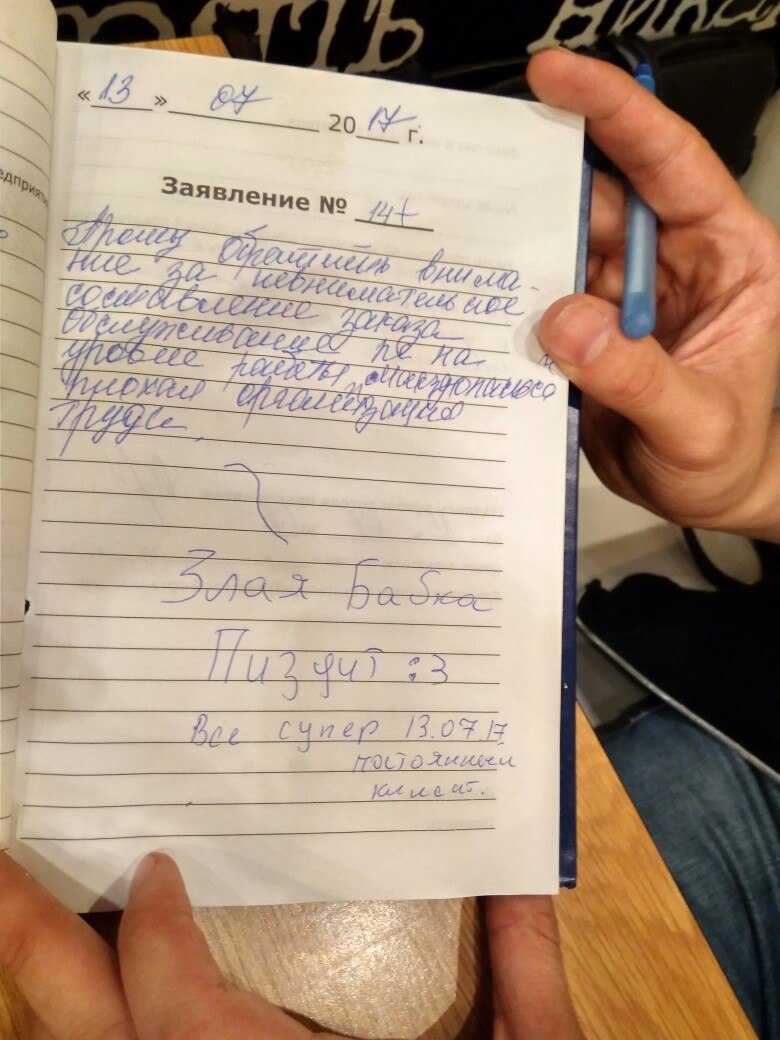 сть ника
едприяти
« 13 » 07 2017 г.
Заявление № 147
Прошу обратить внима-
ние за невнимательное
составление заказа
обслуживание не на
уровне работы Макдональдса
плохая организация
труда.
Злая Бабка
Пиздит :3
Все супер 13.07.17
постоянный
клиент.